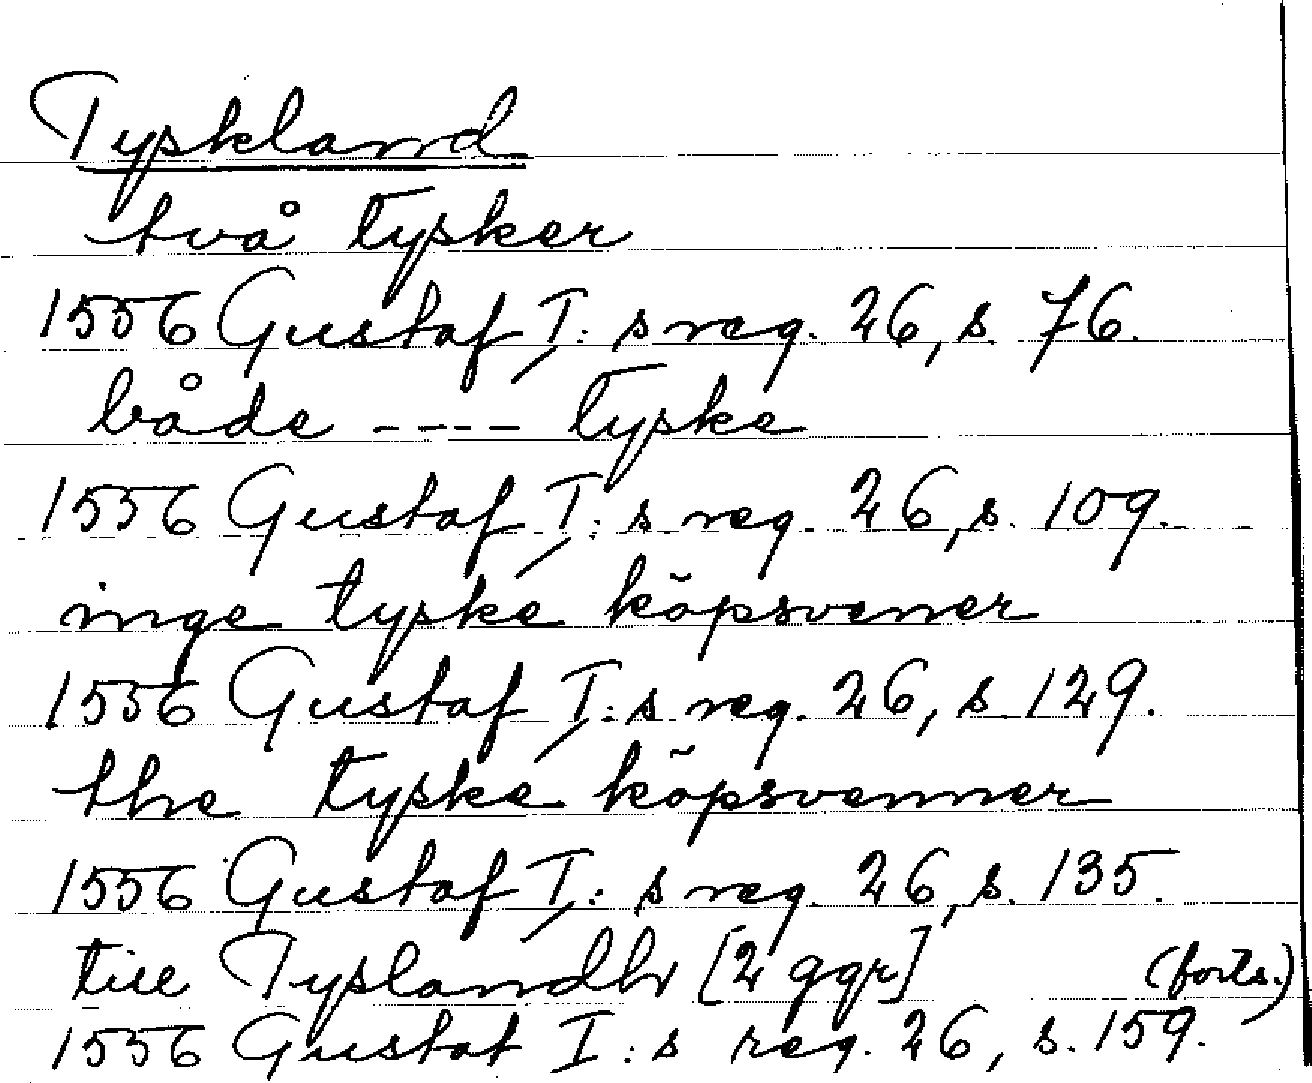 Tyskland
två tysker
1556 Gustaf I: s reg. 26, s. 76.
både ---- tyske
1556 Gustaf I: s reg. 26, s. 109.
inge tyske köpsvener
1556 Gustaf I: s reg. 26, s. 129.
the tyske köpsvenner
1556 Gustaf I: s reg. 26, s. 135.
till Tyslandh [2 ggr] (forts.)
1556 Gustaf I: s reg. 26, s. 159.